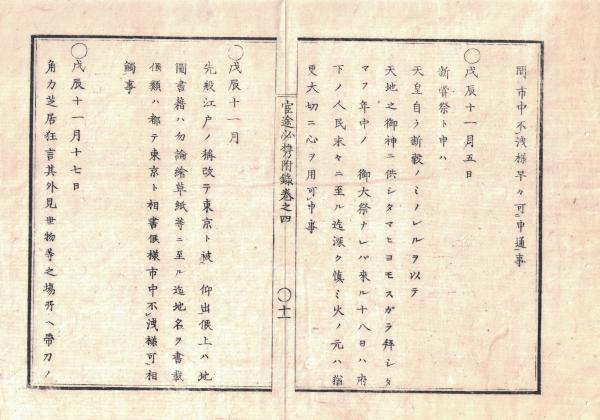 間市中不洩様早々可申通事
○戊辰十一月五日
新嘗祭ト申ハ
天皇自ラ新穀ノミノレルヲ以テ
天地之御神ニ供シタマヒヨモスガラ拜シタ
マフ年中ノ 御大祭ナレバ來ル十八日ハ府
下ノ人民末々ニ至ル迄深ク慎ミ火ノ元ハ猶
更大切ニ心ヲ用可申事
官途必携附録卷之四
○十一
○戊辰十一月
先般江戸ノ稱改テ東京ト被 仰出候上ハ地
圖書籍ハ勿論繪草紙等ニ至ル迄地名ヲ書載
候類ハ都テ東京ト相書候樣市中不洩樣可相
觸事
○戊辰十一月十七日
角力芝居狂言其外見世物等之塲所ヘ帶刀ノ